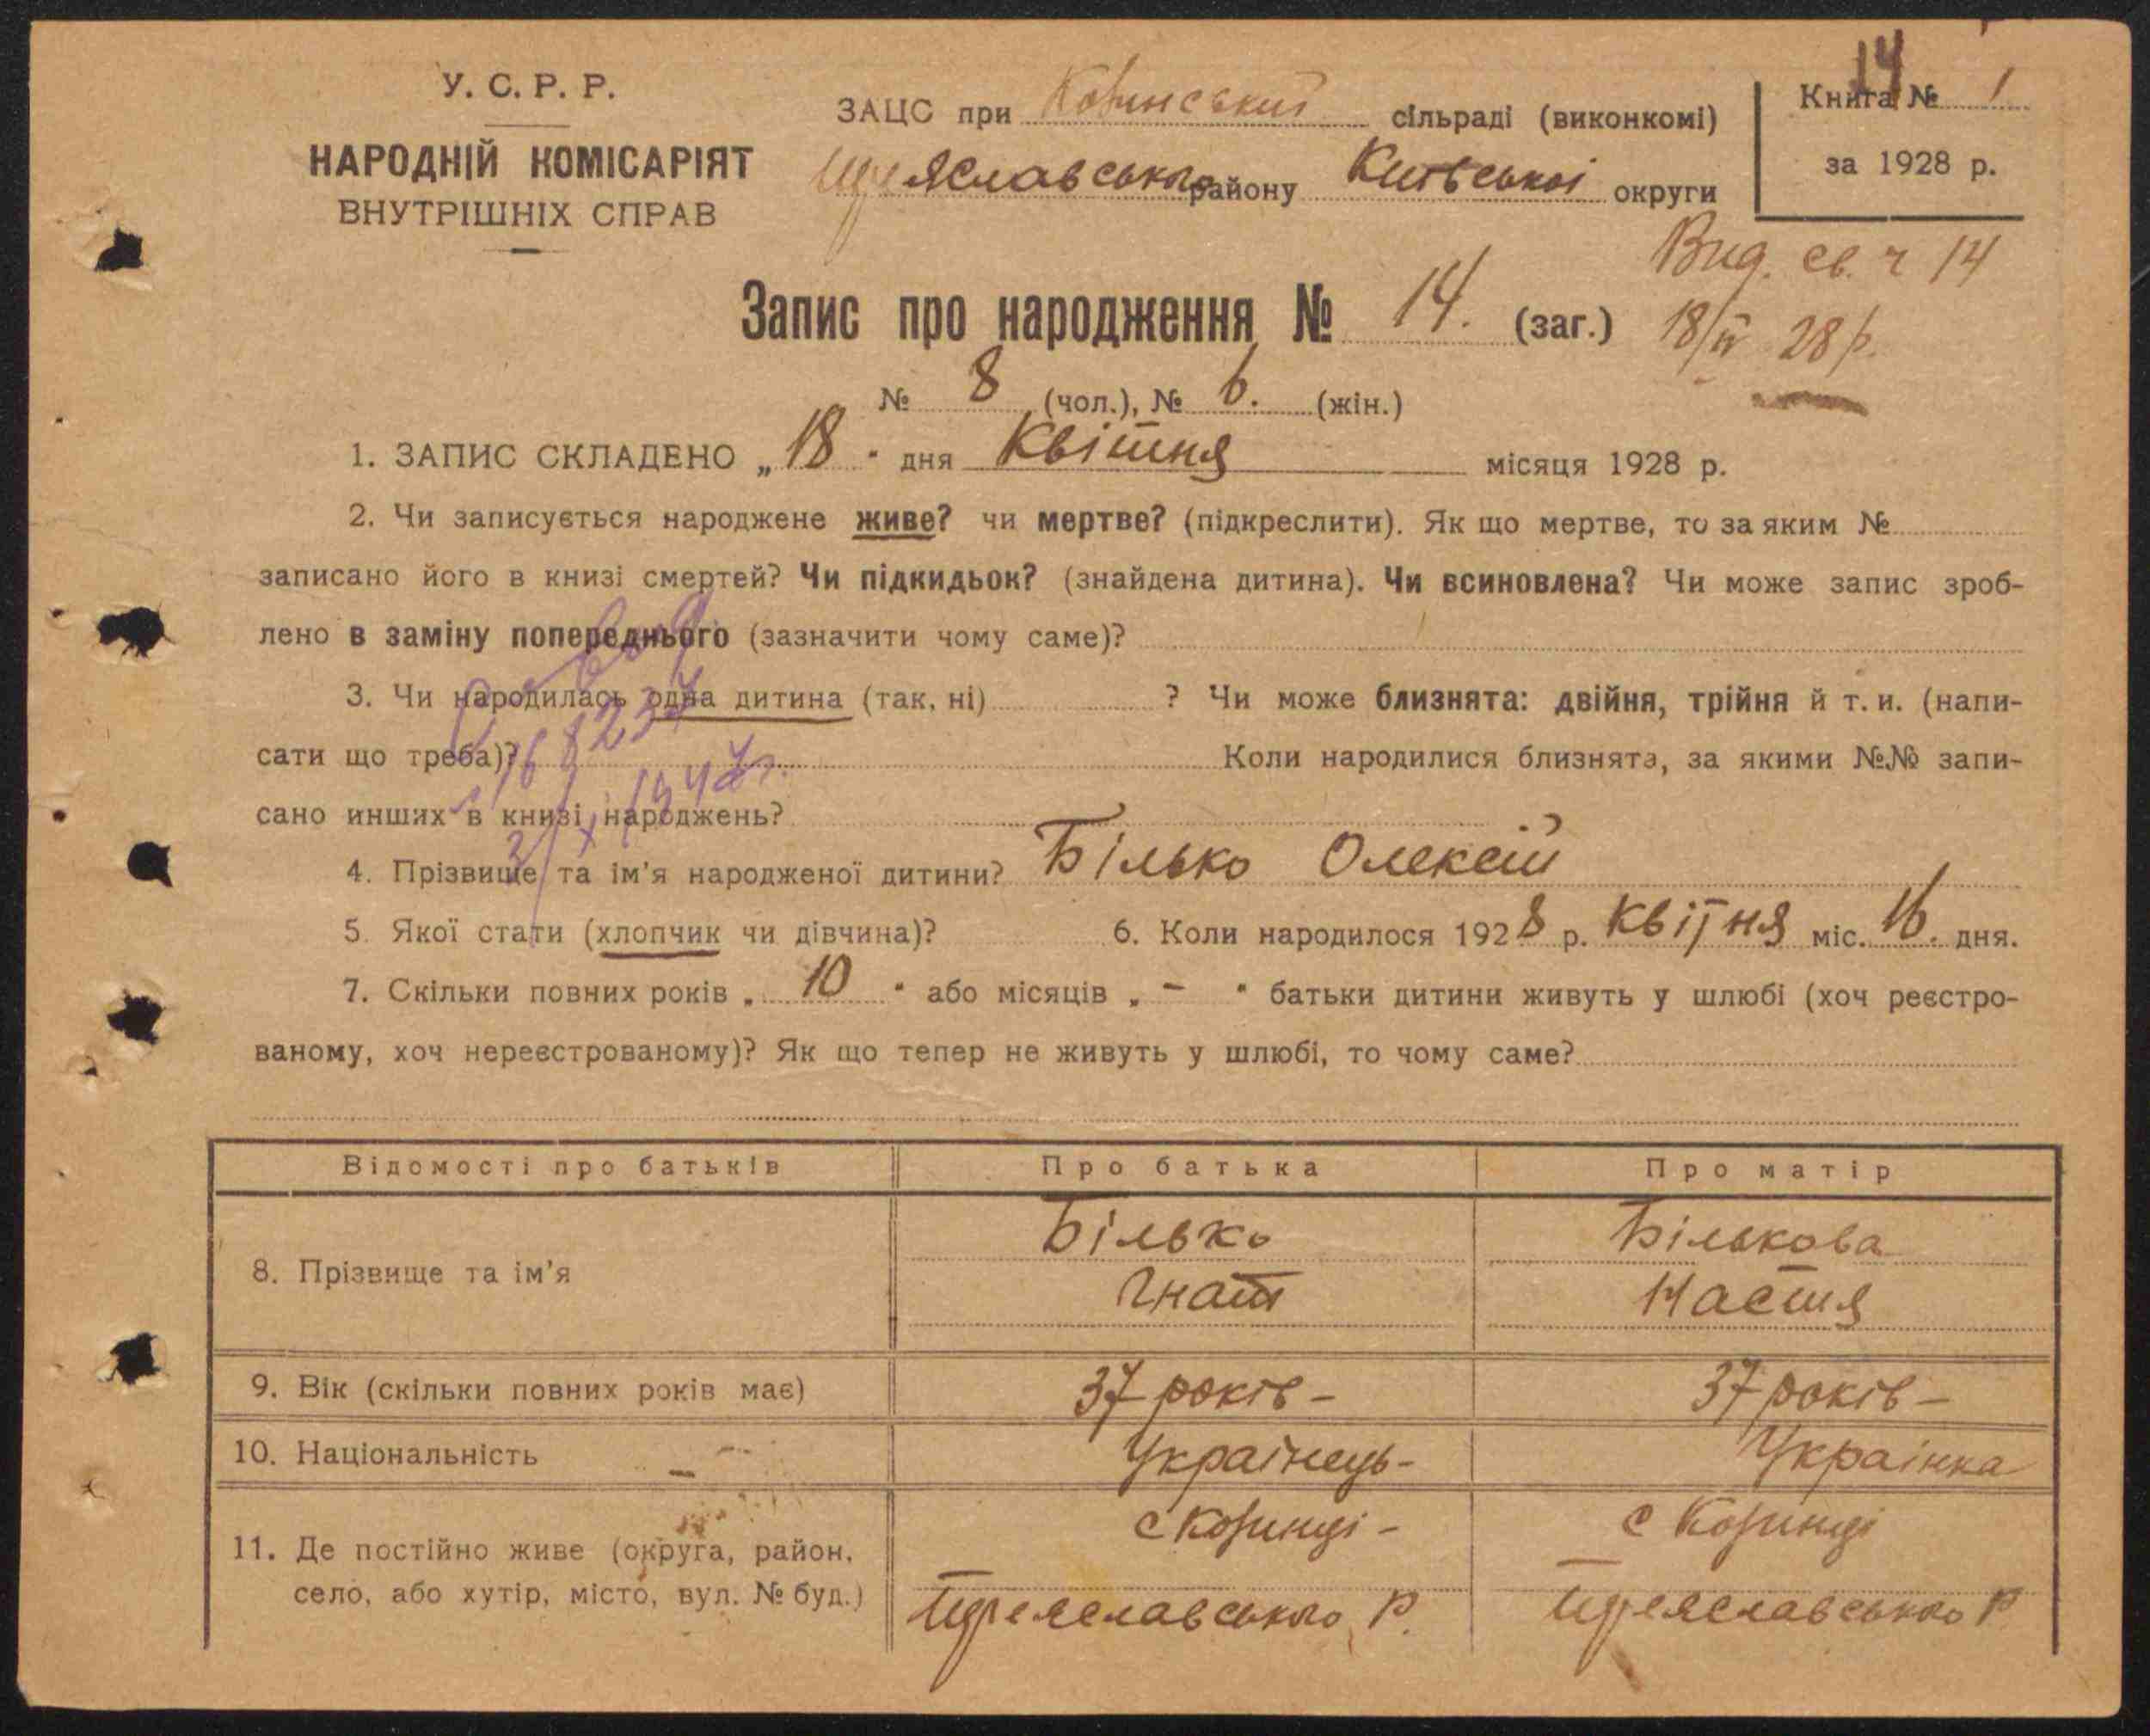 14
У. С. Р. Р.
НАРОДНІЙ КОМІСАРІЯТ
ВНУТРІШНІХ СПРАВ
ЗАЦС при сільраді (виконкомі)
Переяславського району Київської округи
Книга № 1
за 1928 р.
Вид. св. ч 14
18/IV 28 р.
Запис про народження № 14. (заг.)
№ 8 (чол.), № 6. (жін.)
1. ЗАПИС СКЛАДЕНО „18" дня Квітня місяця 1928 р.
2. Чи записується народжене живе? чи мертве? (підкреслити). Як що мертве, то за яким №
записано його в книзі смертей? Чи підкидьок? (знайдена дитина). Чи всиновлена? Чи може запис зроб-
лено в заміну попереднього (зазначити чому саме)?
3. Чи народилась одна дитина (так, ні) ? Чи може близнята: двійня, трійня й т. и. (напи-
сати що треба)? Коли народилися близнята, за якими №№ запи-
сано инших в книзі народжень?
4. Прізвище та ім'я народженої дитини? Білько Олексій
5. Якої стати (хлопчик чи дівчина)? 6. Коли народилося 1928 р. Квітня міс. 16. дня.
7. Скільки повних років „ 10 " або місяців „ - " батьки дитини живуть у шлюбі (хоч реєстро-
ваному, хоч нереєстрованому)? Як що тепер не живуть у шлюбі, то чому саме?
Відомості про батьків Про батька Про матір
8. Прізвище та ім'я
Білько Бількова
Гнат Настя
9. Вік (скільки повних років має) 37 років - 37 років -
10. Національність Українець - Українка
11. Де постійно живе (округа, район,
село, або хутір, місто, вул. № буд.)
с -
с
Переяславського Р. Переяславського Р